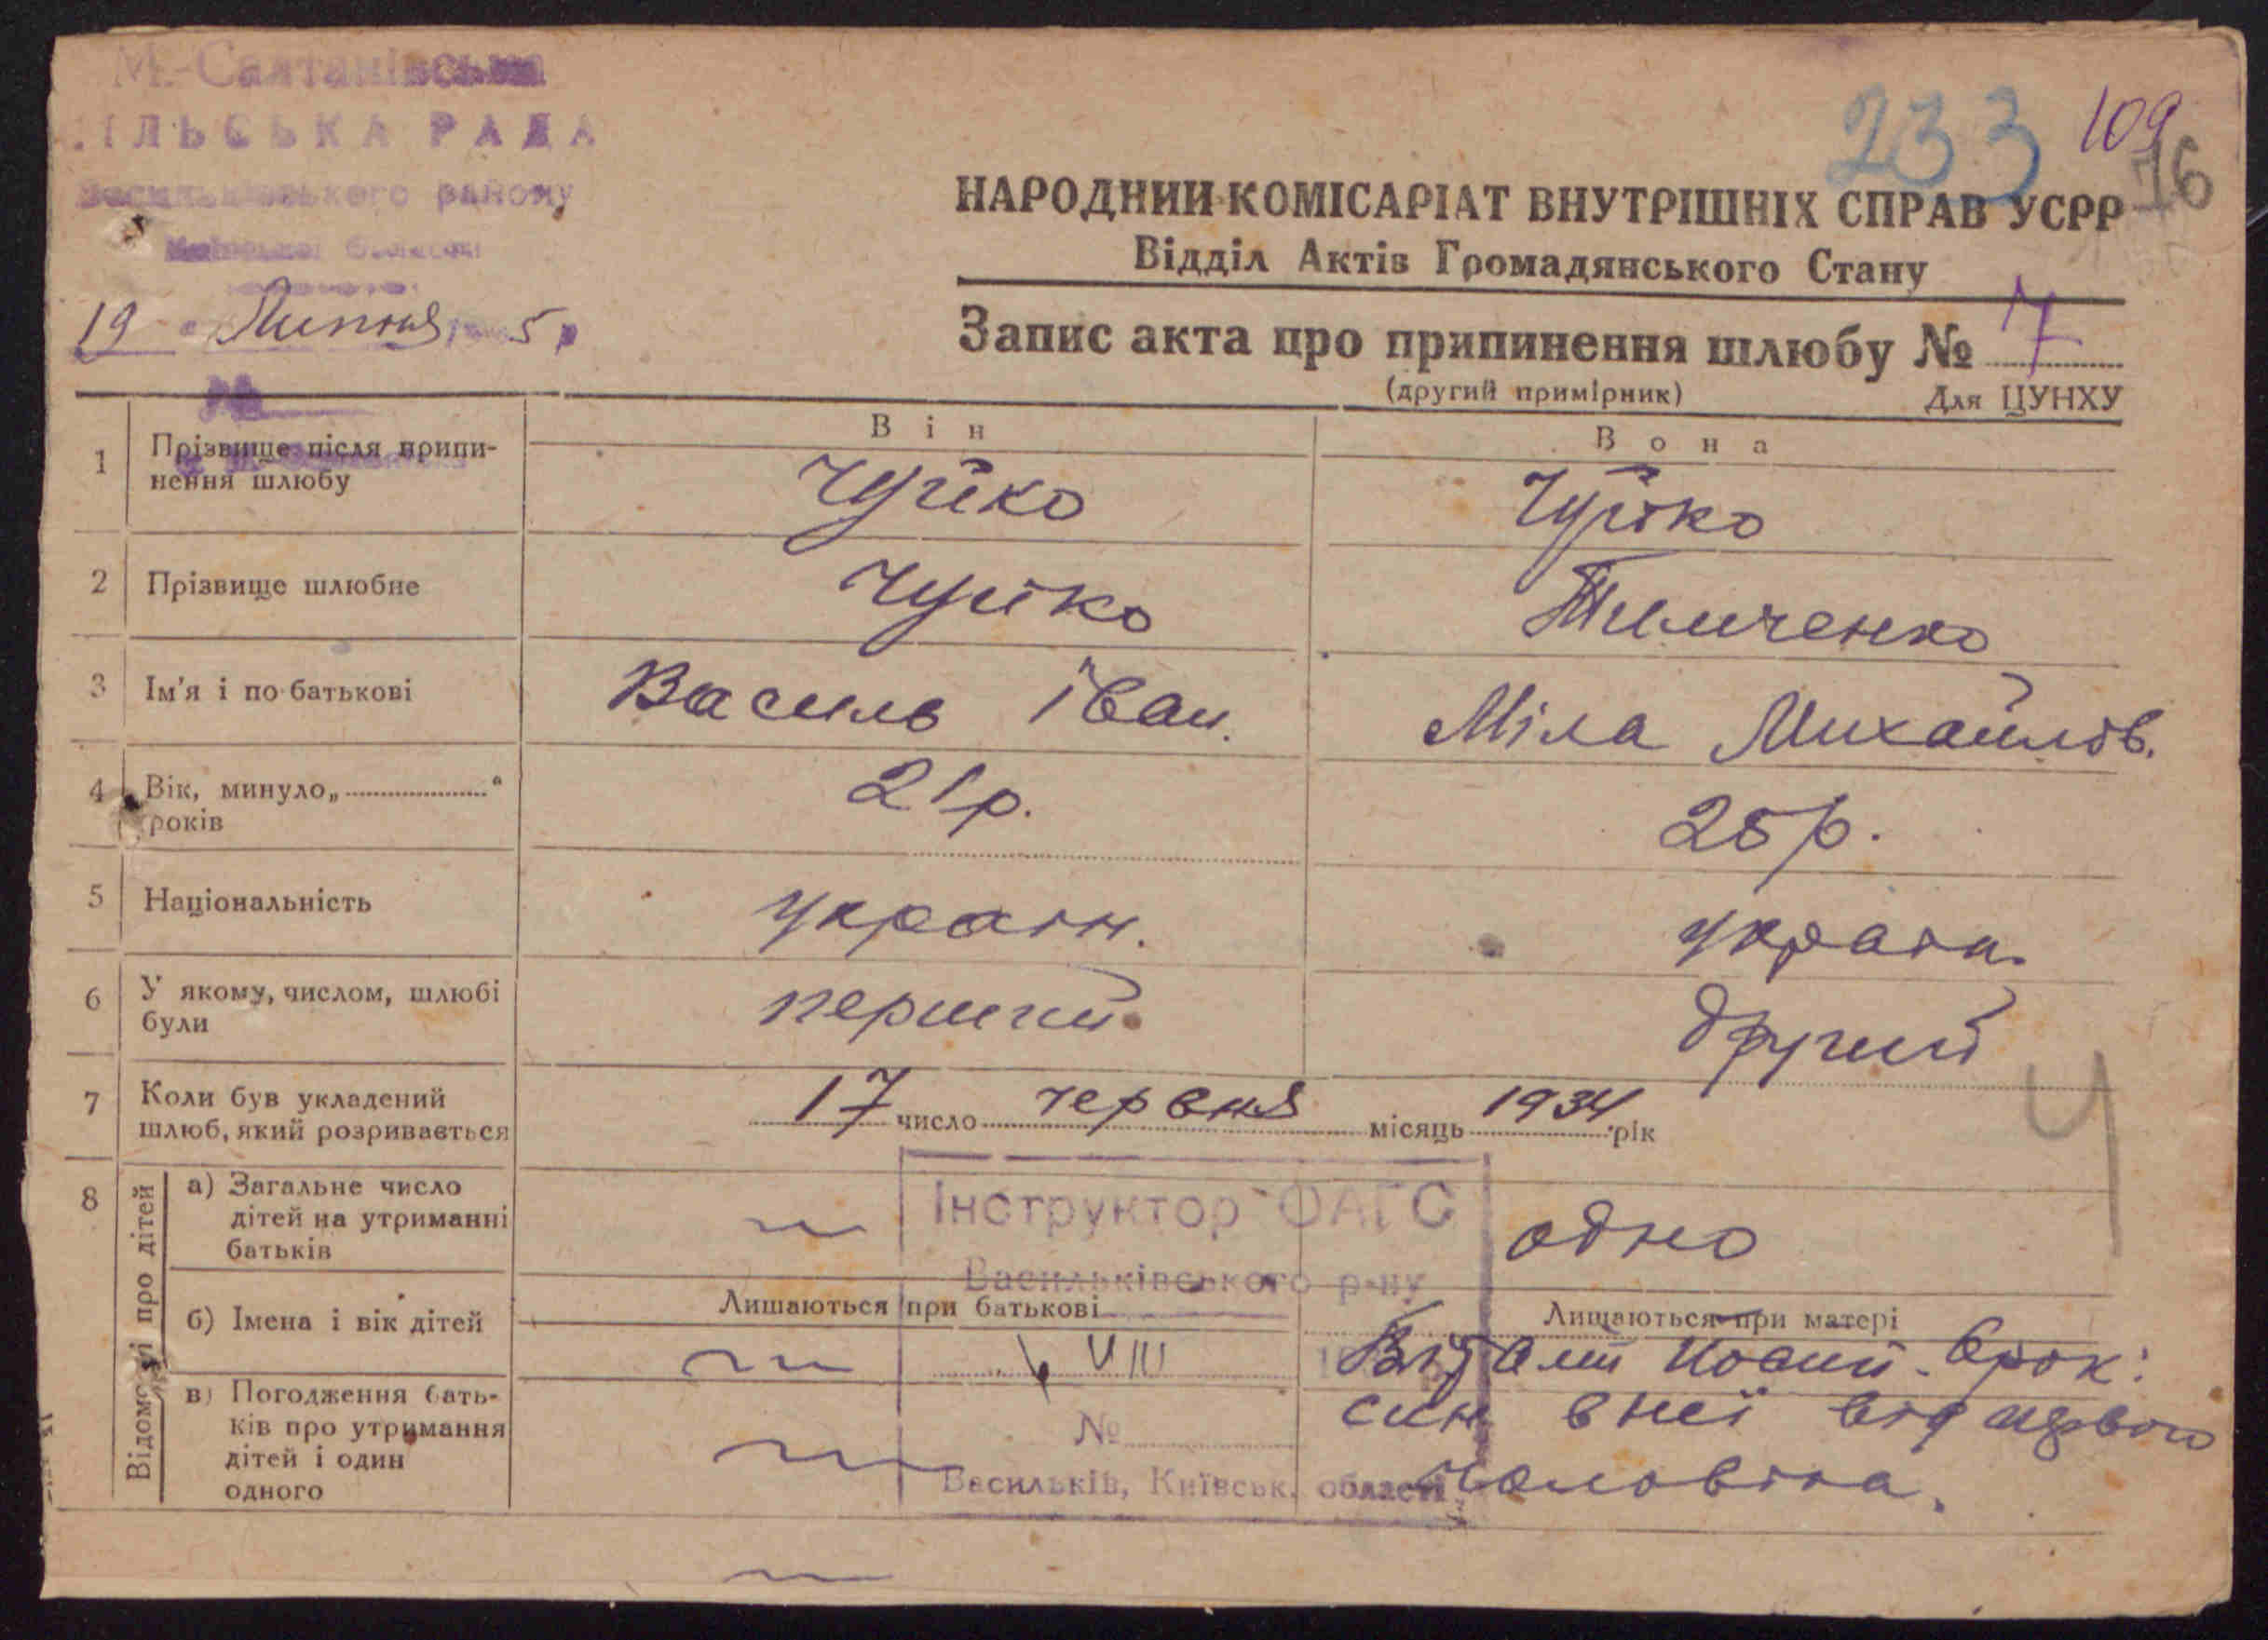 М.-Салтанівська
СІЛЬСЬКА РАДА
Васильківського району
Київської області
19 " Липня 5 р
233
109
76
НАРОДНИЙ КОМІСАРІАТ ВНУТРІШНІХ СПРАВ УСРР
Відділ Актів Громадянського Стану
Запис акта про припинення шлюбу № 7
(другий примірник) Для ЦУНХУ
№
Він Вона
1 Прізвище після припи-
нення шлюбу
Чуйко Чуйко
2 Прізвище шлюбне Чуйко Тимченко
3 Ім'я і по-батькові Василь Іван. Міла Михайлов.
4 Вік, минуло „ “
років
21р. 25р.
5 Національність україн. україн.
6 У якому, числом, шлюбі
були
перший другий
7 Коли був укладений
шлюб, який розривається
17 число червня місяць 1934 рік
Ч
8 Відомості про дітей
а) Загальне число
дітей на утриманні
батьків
одно
Інструктор ФАГС
Васильківського р-ну
б) Імена і вік дітей
Лишаються при батькові Лишаються при матері
VIII
№
Васильків, Київськ. області
син в неї від
чоловіка.
в) Погодження бать-
ків про утримання
дітей і один
одного